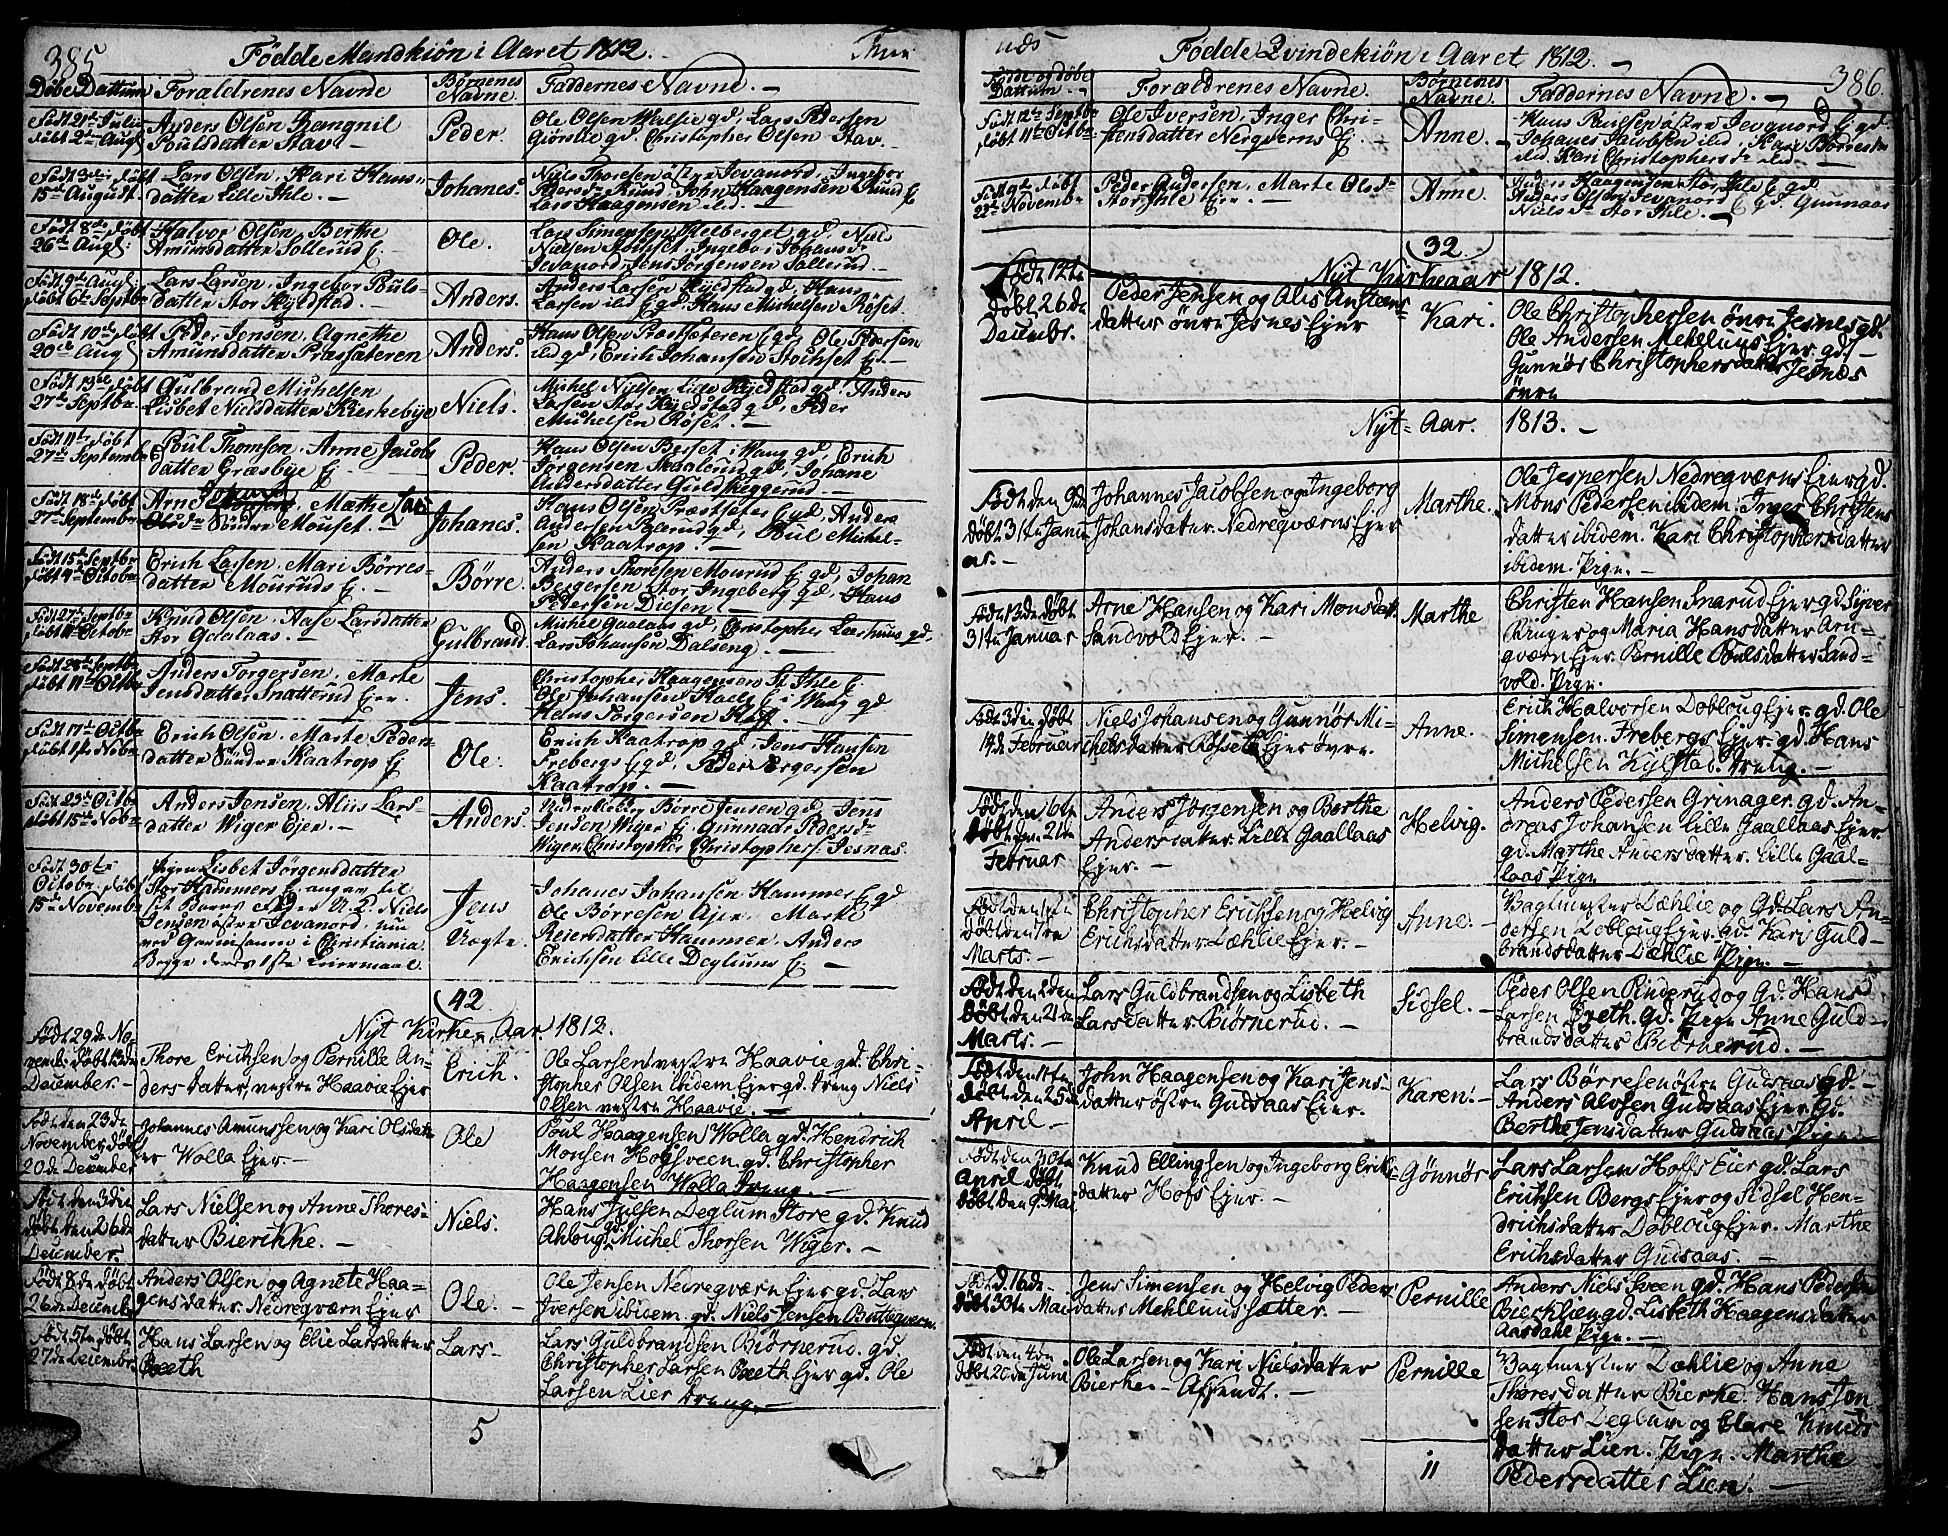 385
Fødde Mandkiøn i Aaret 1812.
Døbe Dattum
Forældrenes Navne
Børnenes Navne.
Faddernes Navne. —
Født 21de Julii døbt 2den Aug
Anders Olsen Rangnil
Poulsdatter Stav —
Peder
Ole Olsen gd, Lars Pedersen
gd. Christopher Olsen Stav. —
Født 3die døbt
15de August.
Lars Olsen, Kari Hans-
datter Lille Ihle. —
Johanes.
Niels Thoresen østre Jevanord, Ingebor
Pedersdr Rund John Haagensen Rund E
Lars Haagensen ibid. —
Født 8de døbt
26de Aug:
Halvor Olsen Berthe
Amunsdatter Sollerud E
Ole.
Lars Simensen gd, Niels
Nielsen Stohset, Ingebor Johansdr
Jevanord, Jens Jørgensen Sollerud. —
Født 9de Aug
døbt 6te Septbr
Lars Larsen, Ingebor Pouls-
datter Stor Kyldstad. —
Anders.
Anders Larsen Kyldstad gd, Hans
Larsen ibd E gd, Hans Michelsen Røset.
Født 10de døbt
20de Aug
Peder Jensen, Agnethe
Amunsdatter Præssæteren
Anders.
Hans Olsen Præstsæteren E gd, Ole Pedersen
ibid gd, Erich Johansen Stochset E —
Født 13de døbt
27de Septbr
Gulbrand Michelsen
Lisbet Nielsdatter Kierkebye
Niels.
Michel Nielsen Lille Kyldstad gd, Anders
Larsen Stor Kyldstad gd, Peder
Michelsen Røset. —
Født 11te døbt
27de Septembr
Poul Thomsen, Anne Jacobs
datter Græsbye E
Peder.
Hans Olsen Berset i Wang gd, Erich
Jørgensen Skaalerud gd, Johane
Andersdatter Guldskeggerud. —
Født 18de døbt
27de Septembr
Arne, Mathe
Søndre Mouset. —
Johanes.
Hans Olsen Præstsæter E gd, Anders
Andersen Barud gd, Poul Michel-
sen Kaatrop. —
Født 15de Septbr
døbt 4de Octobr
Erich Larsen, Mari Børres-
datter Mouruds E. —
Børre.
Anders Thoresen Mourud E. gd, Johan
Bergersen Stor Ingeberg gd, Hans
Pedersen Diesen. —
Født 27de Septbr
døbt 11te Octobr
Knud Olsen, Aase Larsdatter
Stor Gaalaas. —
Gulbrand
Michel Gaalaas gd, Christopher gd,
Lars Johansen Dalseng. —
Født 28de Septbr
døbt 11te Octbr
Anders Torgersen, Marte
Jensdatter Snatterud Eier. —
Jens.
Christopher Haagensen St Ihle E.
Ole Johansen E i Wang gd
Hans Torgersen —
Født 17de Octbr
døbt 1ste Novbr
Erich Olsen, Marte Peders-
datter Søndre Kaatrop E
Ole.
Erich Kaatrop gd, Jens Hansen
Frebergs E gd, Peder Ergersen
Kaatrop. —
Født 23de Octbr
døbt 15de Novbr
Anders Jensen, Alis Lars-
datter Wiger Ejer. —
Anders.
Børre Jensen gd, Jens
Jensen Wiger E, Gunnaar Pedersdr
Wiger, Christopher Christophers Jesnas.
Født 30te
Octobr døbt
15de Novembr
Pigen Lisbet Jørgensdatter
Stor Hammers E. angav til
sit Barns Fader U.K. Niels
Jensen østre Jevanord, nu
ved Garnisonen i Christiania
Begge deres 1ste Leiermaal
Jens
Uægte.
Johanes Johansen Hammer E gd
Ole Børresen Ajer, Marte
Reiersdatter Hammer, Anders
Erichsen Lille Deglum E. —
42
Nyt Kirke Aar 1812.
Født 29de No-
vembr døbt 13de
December. —
Thore Erichsen og Pernille An-
dersdatter, vestre Haavie Ejer
Erich.
Ole Larsen vestre Haavie gd. Chri-
stopher Olsen ibidem Ejer gd. Dreng Niels
Olsen vestre Haavie. —
Født den 23de
November, døbt
20de December
Johannes Amunssen og Kari Olsdat-
ter Wolla Ejer. —
Ole
Poul Haagensen Wolla gd. Hendrich
Monsen Hogsveen gd. Christopher
Haagensen Wolla Dreng. —
Født den 3die
døbt den 26de
December.
Lars Nielsen og Anne Thores-
datter Bierikke. —
Niels.
Hans Juulsen Deglum Store gd. Knud
Ahlougs gd. Michel Thorsen Wiger. —
Født 8de døbt
26de December
Anders Olsen og Agnete Haa-
gensdatter Nedregværn Ejer
Ole. —
Ole Jensen Nedregværn Ejer gd. Lars
Iversen ibidem gd. Niels Jensen Butteqvern.
Født 5te døbt
27de Decembr
Hans Larsen og Elie Larsdatter
Bræth
Lars —
Lars Guldbrandsen Biørnerud. gd.
Christopher Larsen Bræth Ejer gd. Ole
Larsen Lier Dreng. —
5
386
Fødde Qvindekiøn i Aaret 1812. —
Fødde og døbe Dattum. —
Forældrenes Navne.
Børnenes Navne.
Faddernes Navne. —
Født 12te Septbr
døbt 11te Octbr
Ole Iversen, Inger Chri-
stensdatter Nerqverns E. —
Anne. —
Hans Poulsen østre Jevanord E gd.
Johanes Jacobsen ibid, Kari Børresdr
ibid. Kari Christophersdr ibid. —
Født 9de døbt
22de Novembr
Peder Andersen, Marte Olsdr
Stor Ihle Eier. —
Anne.
Anders Haagensen Stor Ihle E gd
Anders Olsen Jevanord E gd. Gunnaar
Nielsdr Stor Ihle. —
32
Nyt Kirkeaar 1812.
Født 12te
døbt 26de
Decembr.
Peder Jensen og Alis Anstens-
datter øvre Jesnes Ejer
Kari.
Ole Christophersen øvre Jesnes gd.
Ole Andersen Mehlums Ejer gd. —
Gunnør Christophersdatter Jesnæs
øvre
Nyt Aar. 1813. —
Født den 9de
døbt 31te Janu
ar. —
Johannes Jacobsen og Ingeborg
Johansdatter Nedregværns Ejer
Marthe.
Ole Jespersen Nedregværns Ejer gd.
Mons Pedersen ibidem. Inger Christens
datter ibidem. Kari Christophersdatter
ibidem. Pige. —
Født 13de døbt
31te Januar
Arne Hansen og Kari Monsdatt.
Sandvold Ejer. —
Marthe
Christen Hansen Snarud Ejer gd. Syver
Ringer og Maria Hansdatter Aru-
gværn Ejer. Pernille Poulsdatter Sand-
vold. Pige.
Født 3die døbt
14de Februar
Niels Johansen og Gunnør Mi-
chelsdatter Røsete Ejer øvre.
Anne.
Erich Halvorsen Dobloug Ejer gd. Ole
Simensen Frebergs Ejer gd. Hans
Michelsen Kylstad. Dreng.
Født den 6te
døbt den 21de
Februar
Anders Jørgensen og Berthe
Andersdatter Lille Gaallaas
Ejer. —
Helvig.
Anders Pedersen Grinager gd. An-
dreas Johansen Lille Gaallaas Ejer
gd. Marthe Andersdatter Lille Gaal-
laas Pige
Født den 1ste
døbt den
Marts. —
Christopher Erichsen og Helvig
Erichsdatter Dæhlie Ejer. —
Anne. —
Vagtmester Dæhlie og Gd. Lars An-
dersen Dobloug Ejer gd. Kari Guld-
brandsdatter Dæhlie Pige. —
Født den 2den
døbt den 21de
Marts. —
Lars Guldbrandsen og Lisbeth
Larsdatter Biørnerud. —
Sidsel. —
Peder Olsen Rinderud og Gd. Hans
Larsen Bræth. gd. Pige Anne Guld-
brandsdatter Biørnerud. —
Født den
døbt den 25de
April —
John Haagensen og Kari Jens-
datter østre Gudsaas Ejer.
Karen. —
Lars Børresen østre Gudsaas gd. —
Anders Alvsen Gudsaas Ejer Gd.
Berthe Jensdatter Gudsaas Pige
Født den 30te
April døbt
døbt den 9de Mai
Knud Ellingsen og Ingeborg Erichs-
datter Hofs Ejer. —
Gønnør
Lars Larsen Hoffs Eier gd. Lars
Erichsen Bergs Ejer og Sidsel Hen-
drichsdatter Dobloug Ejer. Marthe
Erichsdatter Gudsaas. —
Født d. 16de
døbt 30te Mai
Jens Simensen og Helvig Peders
datter Mehlumssætter. —
Pernille
Anders Niels Sveen gd. Hans Pedersen
Bierkhøen gd. Lisbeth Haagensdatter
Aasdahl Pige. —
Født den 4de
døbt 20de Juni
Ole Larsen og Kari Nielsdatter
Bierke — Affendt. —
Pernille
Vagtmester Dæhlie og Anne
Thoresdatter Bierke. Hans Jen
sen Stor Deglum og Clare Knuds
datter Lien. Pige. Marthe
Pedersdatter Lien. —
11